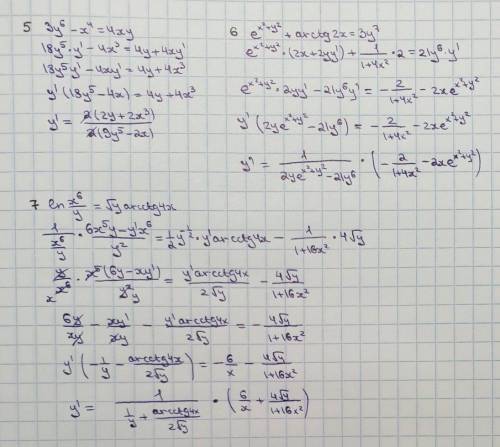 5 3y⁶ - x⁴ = 4xy
18y⁵ · y' - 4x³ = 4y + 4xy'
18y⁵y' - 4xy' = 4y + 4x³
y' (18y⁵ - 4x) = 4y + 4x³
y' = 2(2y + 2x³) / 2(9y⁵ - 2x)
6 e^(x²+y²) + arctg 2x = 3y⁷
e^(x²+y²) · (2x + 2yy') + 1/(1+4x²) · 2 = 21y⁶ · y'
e^(x²+y²) · 2yy' - 21y⁶y' = - 2/(1+4x²) - 2xe^(x²+y²)
y' (2ye^(x²+y²) - 21y⁶) = - 2/(1+4x²) - 2xe^(x²+y²)
y' = 1/(2ye^(x²+y²) - 21y⁶) · (- 2/(1+4x²) - 2xe^(x²+y²))
7 ln x⁶/y = √y arcctg 4x
1/(x⁶/y) · (6x⁵y - y'x⁶)/y² = 1/2 y^(-1/2) · y' arcctg 4x - 1/(1+16x²) · 4√y
y/x x⁶ · x⁵(6y - xy')/y² y = y' arcctg 4x/(2√y) - 4√y/(1+16x²)
6y/xy - xy'/xy - y' arcctg 4x/(2√y) = - 4√y/(1+16x²)
y' (- 1/y - arcctg 4x/(2√y)) = - 6/x - 4√y/(1+16x²)
y' = 1/(1/y + arcctg 4x/(2√y)) · (6/x + 4√y/(1+16x²))